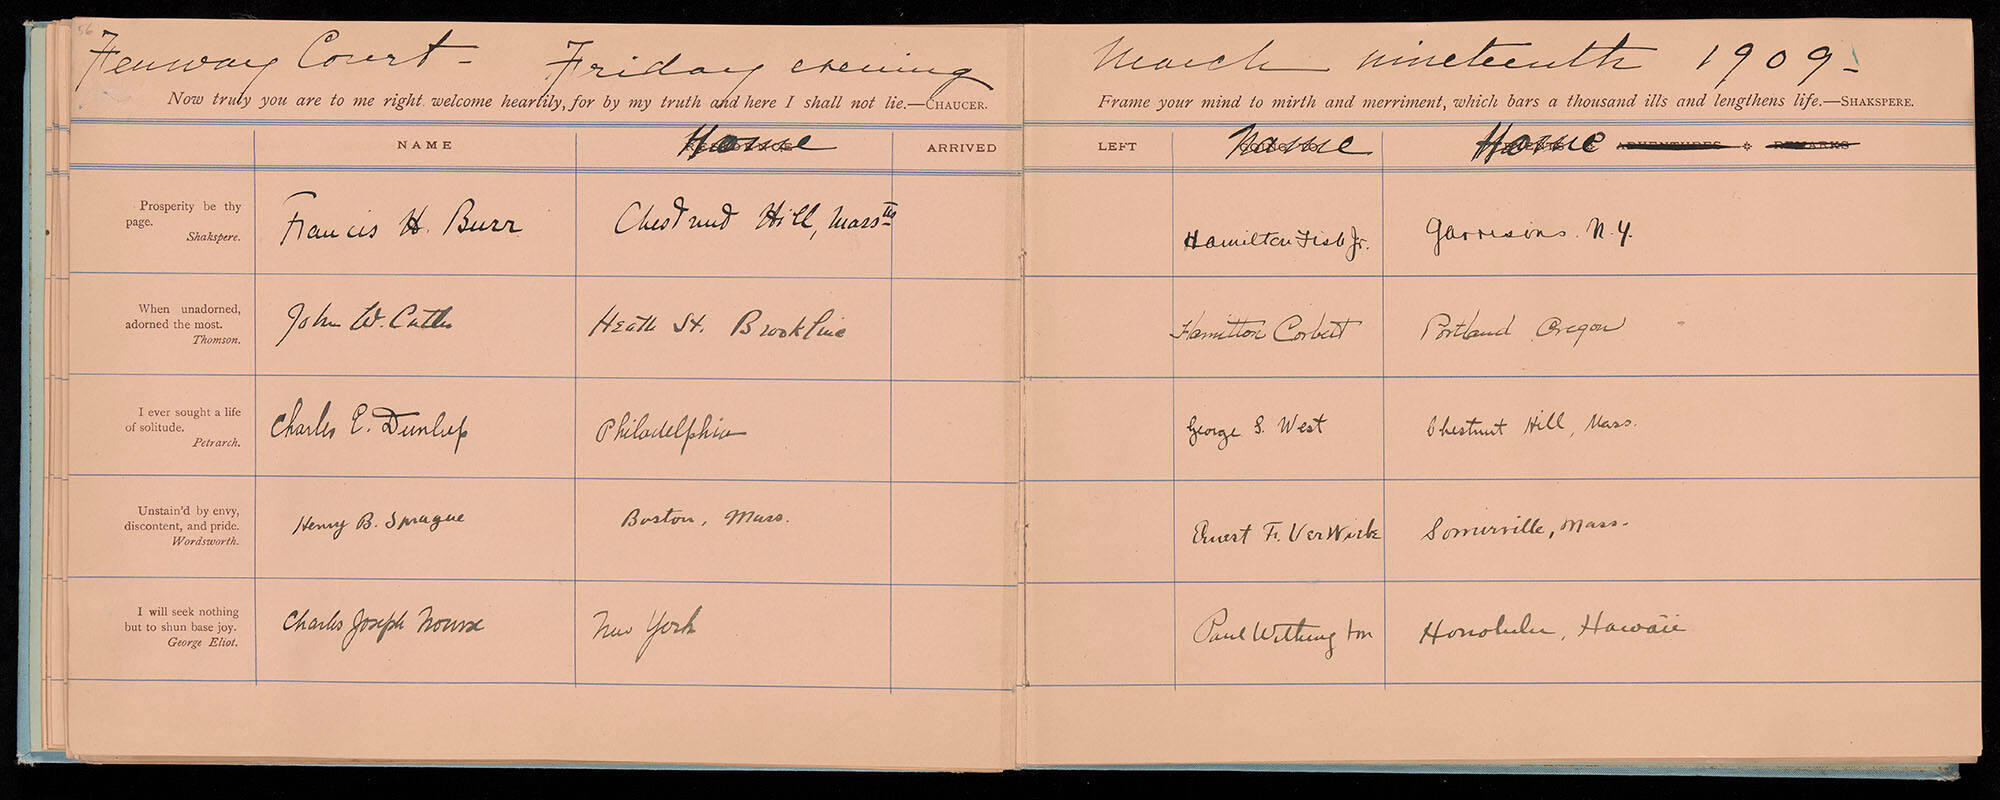 56
Fenway Court - Friday evening
Now truly you are to me right welcome heartily, for by my truth and here I shall not lie.—CHAUCER.
NAME Home ARRIVED
Prosperity be thy
page.
Shakspere.
Francis H. Burr Chestnut Hill, Massts
When unadorned,
adorned the most.
Thomson.
John W. Cutler Heath St. Brookline
I ever sought a life
of solitude.
Petrarch.
Charles E. Dunlap Philadelphia
Unstain'd by envy,
discontent, and pride.
Wordsworth.
Henry B. Sprague Boston, Mass.
I will seek nothing
but to shun base joy.
George Eliot.
Charles Joseph Nourse New York
March nineteenth 1909-
Frame your mind to mirth and merriment, which bars a thousand ills and lengthens life.—SHAKSPERE.
LEFT Name Home ADVENTURES REMARKS
Hamilton Fish Jr. Garrisons. N.Y.
Hamilton Corbett Portland Oregon
George S. West Chestnut Hill, Mass.
Ernest F. VerWiebe Somerville, Mass.
Paul Withington Honolulu, Hawaii